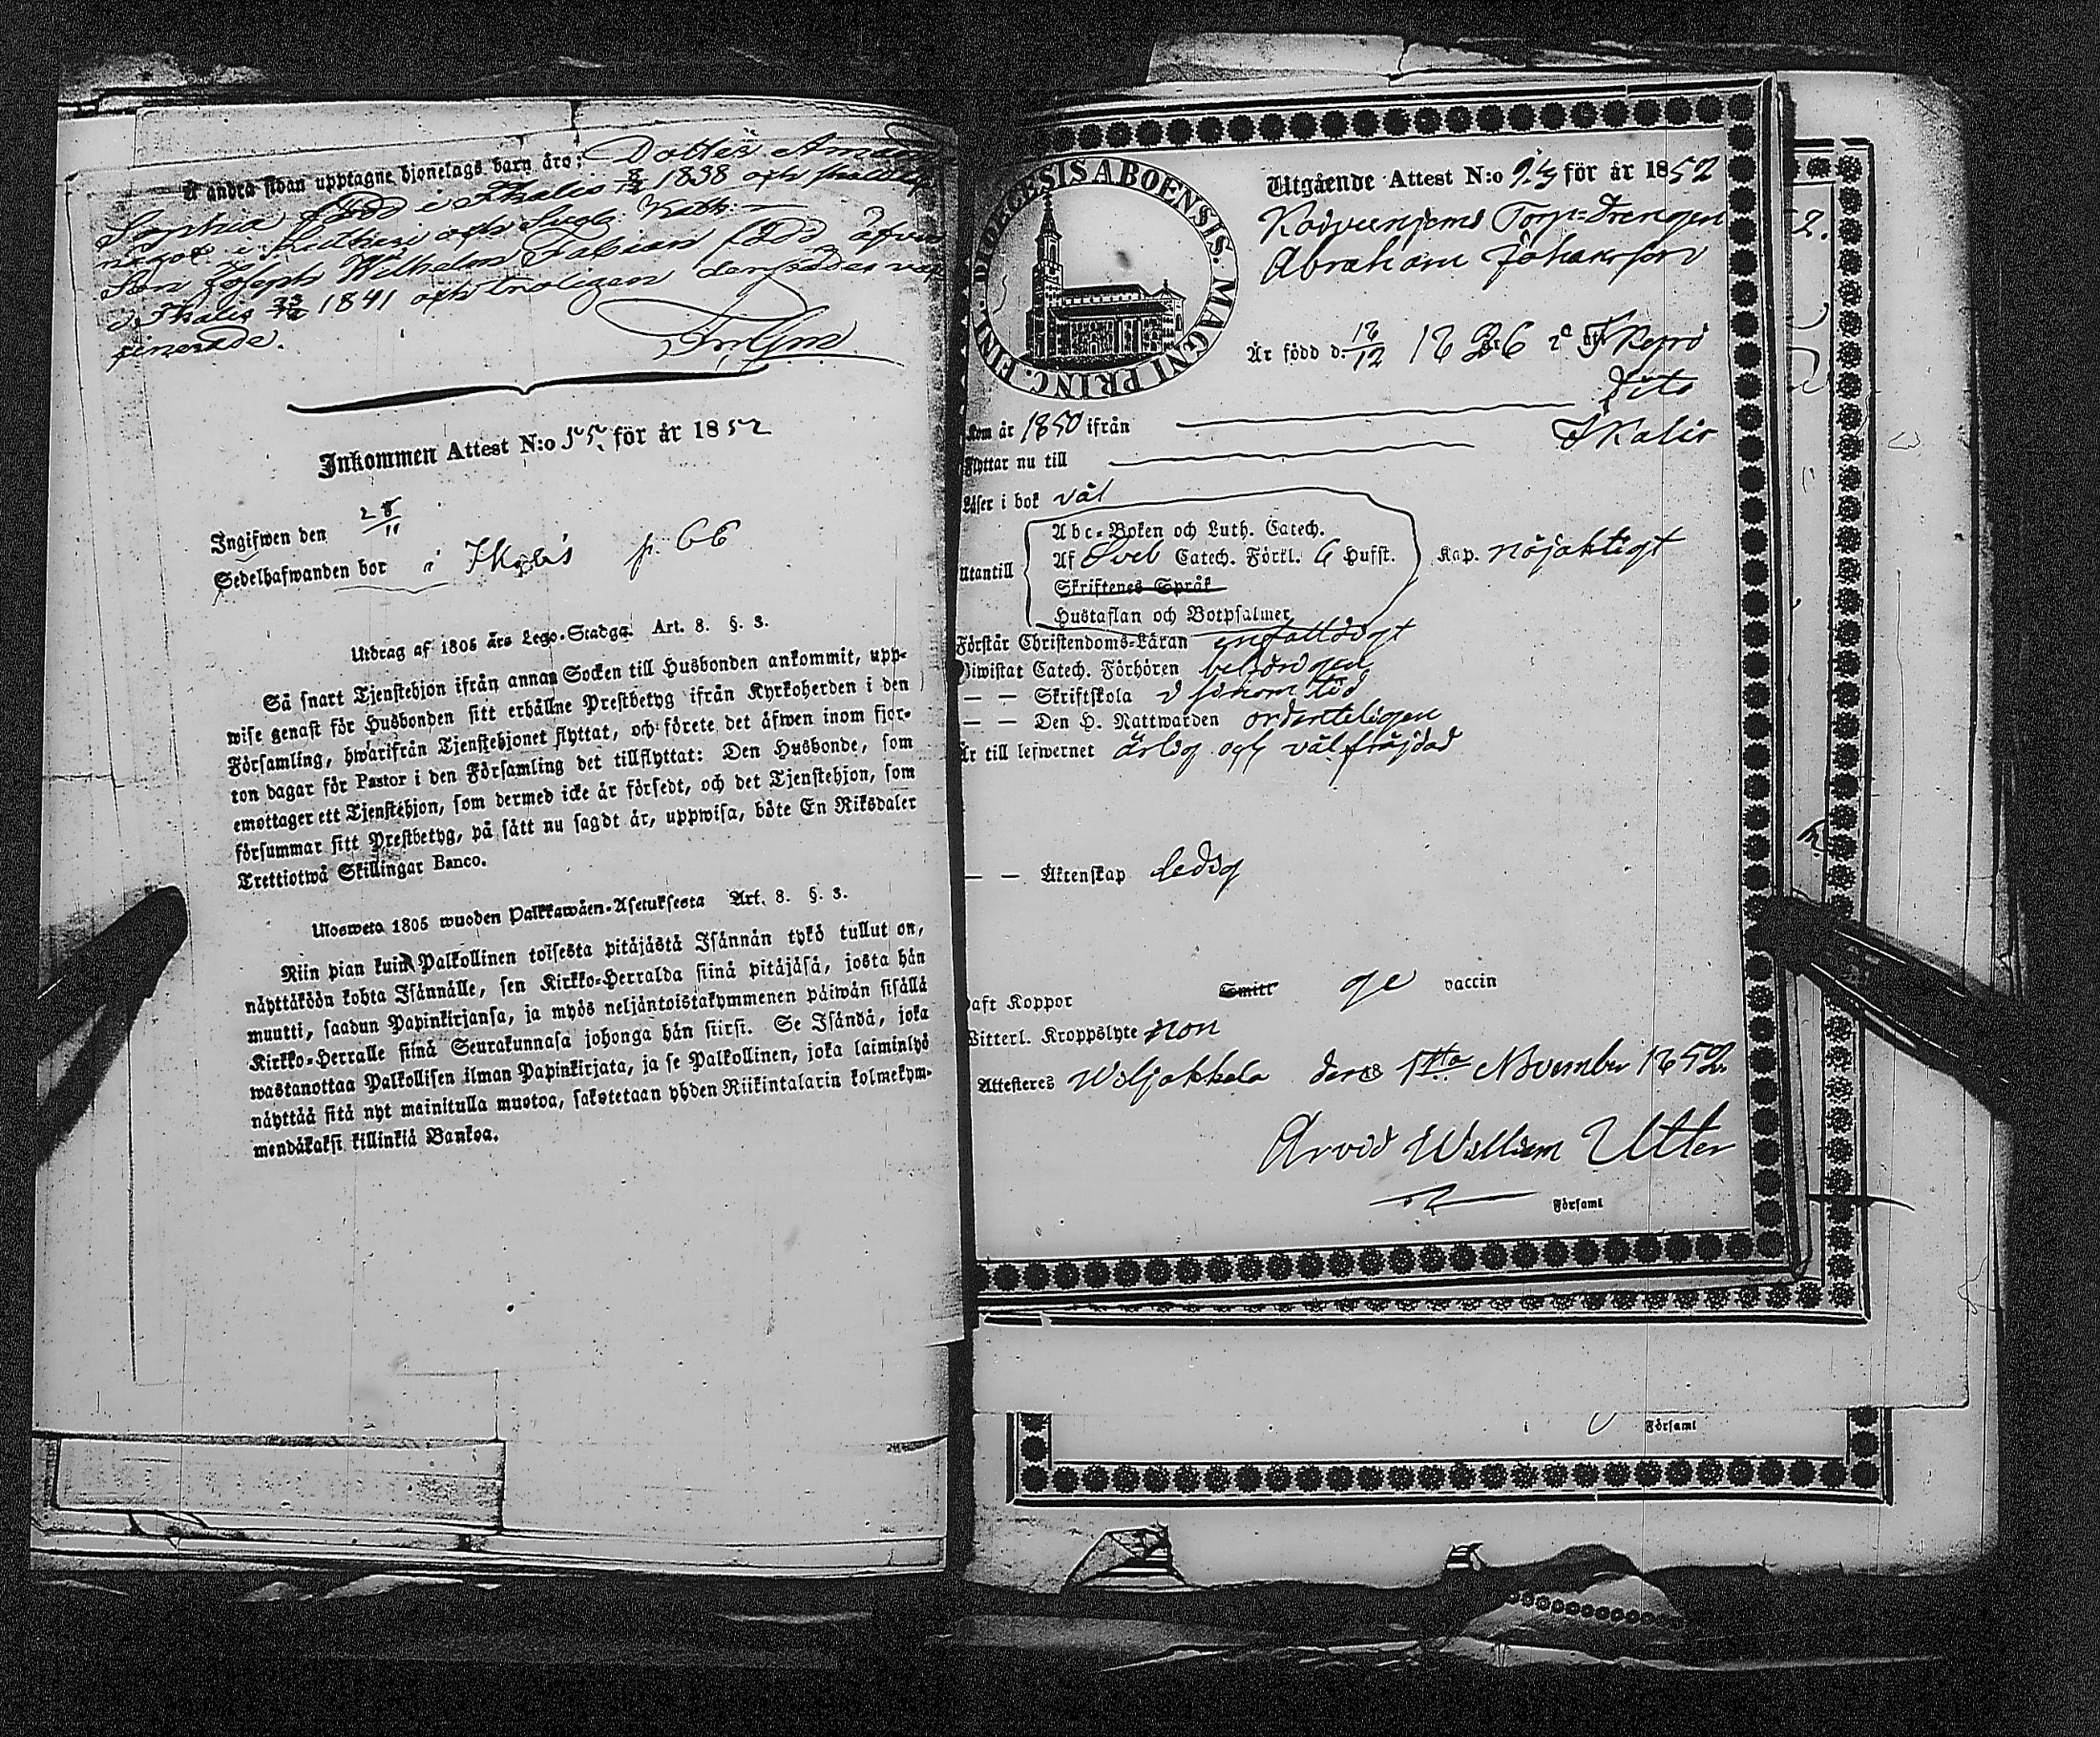 å andra sidan upptagne hjonelags barn äro: Dotter
Sophia född i Ikalis 1838 och
Son Joseph Wilhelm Fabian född äfven
i Ikalis 1841 och troligen dersädes vac-
cinerade.
Inkommen Attest N:o 55. för år 1852
Ingifwen den 28/11
Sedelhafwanden bor i Ikalis p. 66
Utdrag af 1805 års Lego-Stadga. Art. 8. §. 3.
Så snart Tjenstehjon ifrån annan Socken till Husbonden ankommit, upp-
wise genast för Husbonden sitt erhållne Prestbetyg ifrån Kyrkoherden i den
Församling, hwarifrån Tjenstehjonet flyttat, och förete det äfwen inom fjor-
ton dagar för Pastor i den Församling det tillflyttat: Den Husbonde, som
emottager ett Tjenstehjon, som dermed icke är försedt, och det Tjenstehjon, som
försummar sitt Prestbetyg, på sätt nu sagdt är, uppwisa, böte En Riksdaler
Trettiotwå Skillingar Banco.
Ulosweto 1805 wuoden Palkkawäen-Asetuksesta Art. 8. §. 3.
Niin pian kuin Palkollinen toisesta pitäjästä Isännän tykö tullut on,
näyttäköön kohta Isännälle, sen Kirkko-Herralda siinä pitäjäsä, josta hän
muutti, saadun Papinkirjansa, ja myös neljäntoistakymmenen päiwän sisällä
Kirkko-Herralle siinä Seurakunnasa johonga hän siirsi. Se Isändä, joka
wastanottaa Palkollisen ilman Papinkirjata, ja se Palkollinen, joka laiminlyö
näyttää sitä nyt mainitulla muotoa, sakotetaan yhden Riikintalarin kolmekym-
mendäkaksi killinkiä Bankoa.
DIOECESIS ABOENSIS. MAGNI PRINC. FINL.
Utgående Attest N:o 93 för år 1852
Torp-Drengen
Abraham Johansson
Är född d. 12 1826 i
Dito
Kom år 1850 ifrån
Ikalis
Flyttar nu till
Läser i bok väl
Abc-Boken och Luth. Catech.
Utantill Af Sveb Catech. Förkl. 6 Hufst. Kap. nöjaktigt
Skriftenes Språk
Hustaflan och Botpsalmer
Förstår Christendoms-Läran enfaldigt
Biwistat Catech. Förhören behörigen
— — Skriftskola i sinom tid
— — Den H. Nattwarden ordenteligen
Är till lefwernet ärlig och välfräjdad
— — Äktenskap ledig
Haft Koppor Smitt ge vaccin
Witterl. Kroppslyte non
Attesteres Wiljakkala den 1sta November 1852.
Arvid William Utter
Församl
i Församl